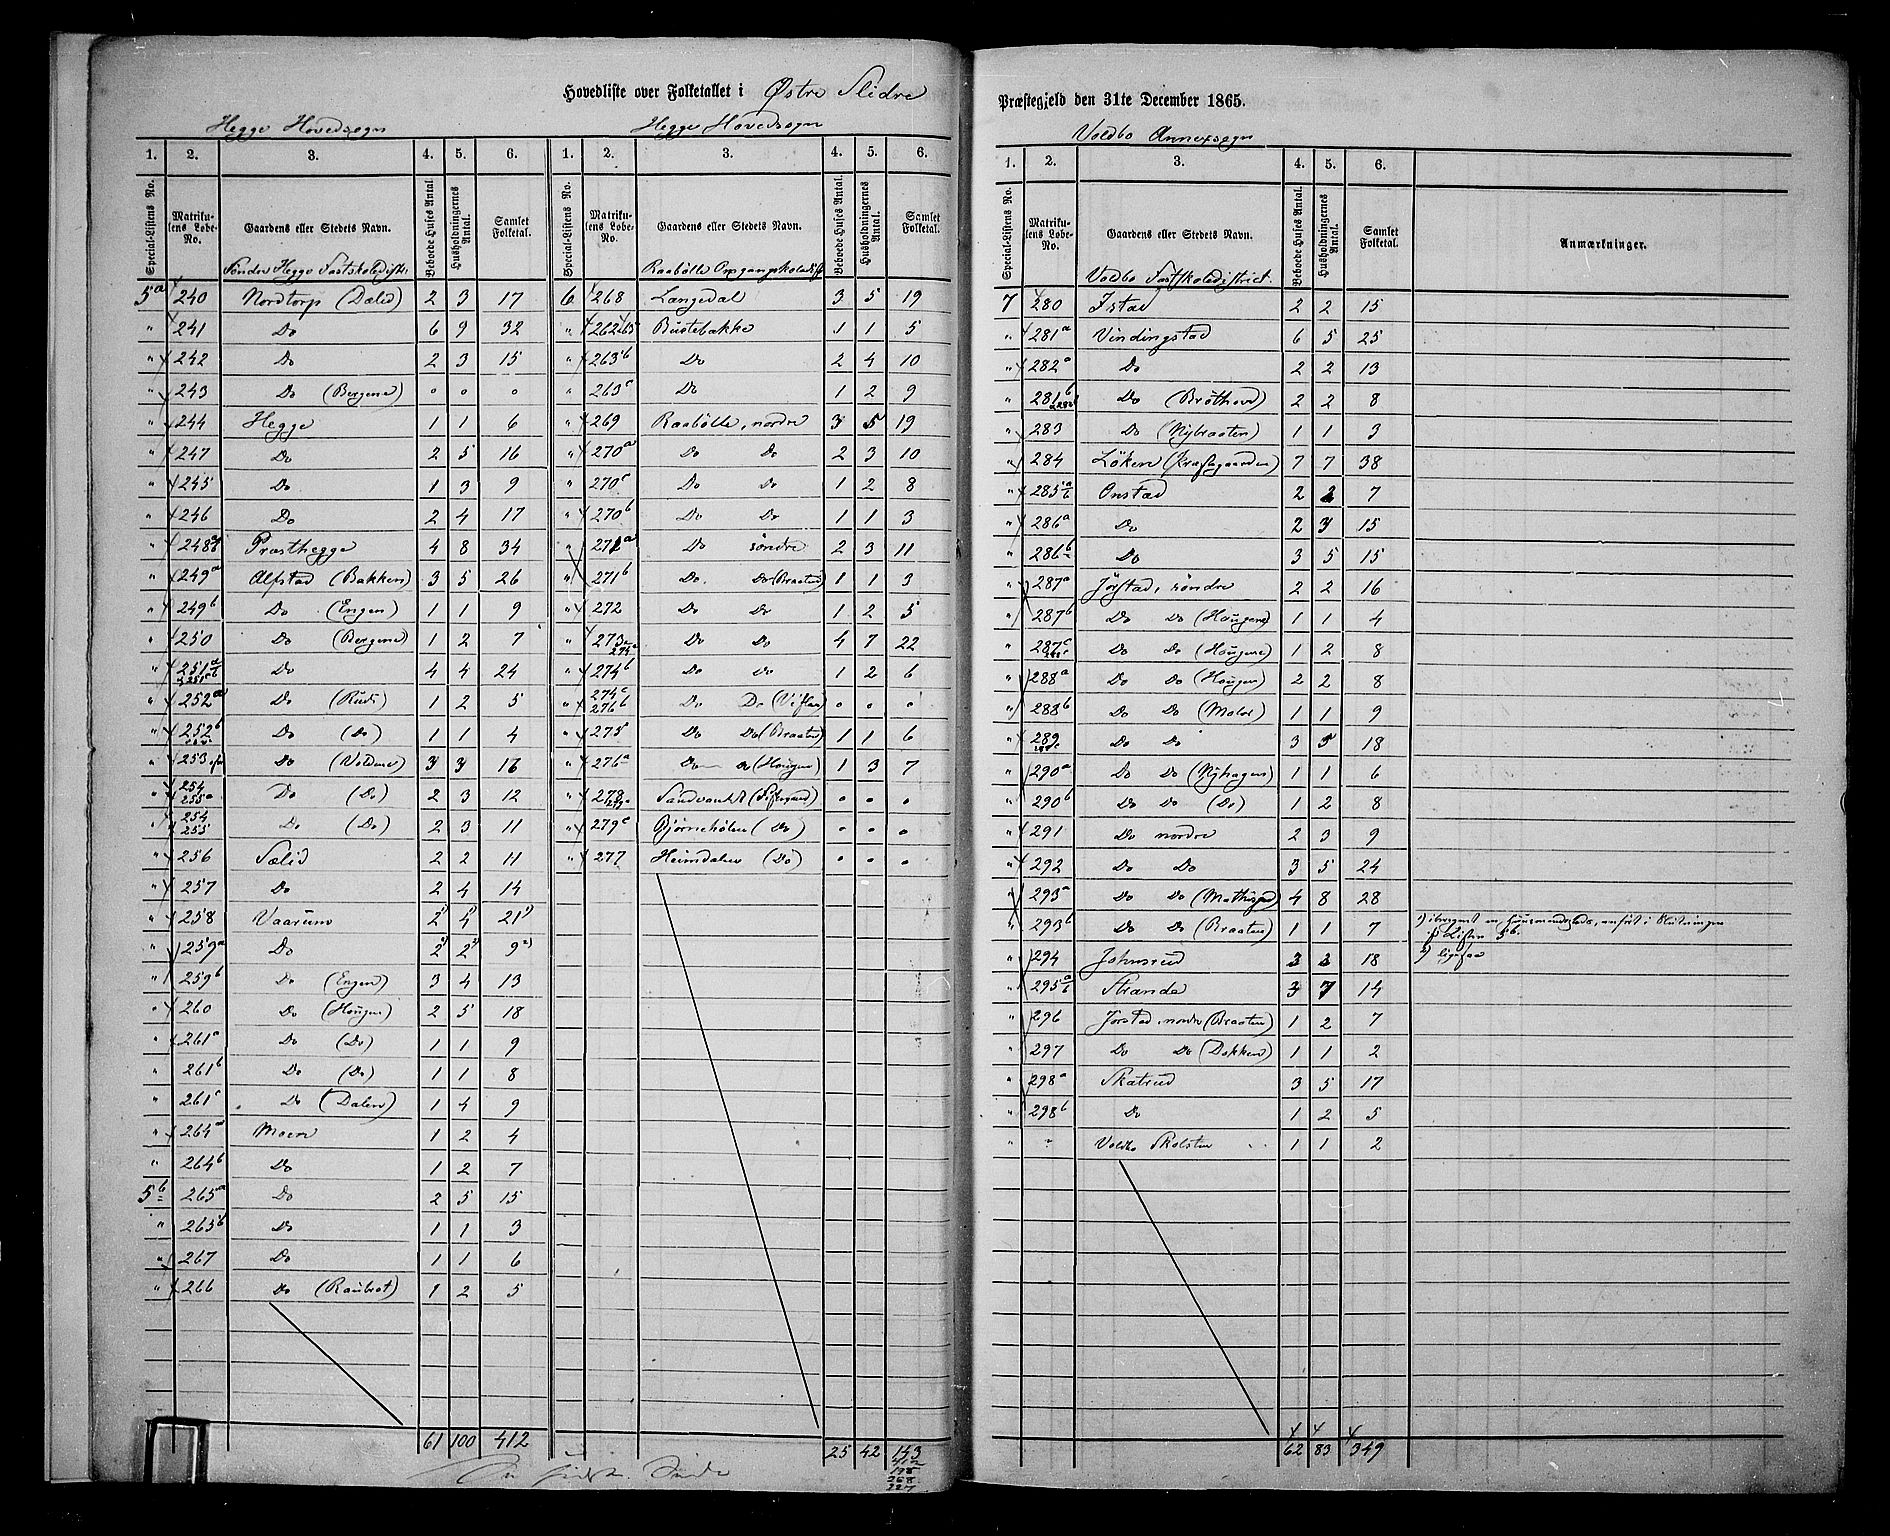 Hovedliste over Folketallet i Østre Slidre
Hegge Hovedsogn
Hegge Hovedsogn
1. 2. 3. 4. 5. 6. 1. 2. 3. 4. 5. 6.
Special-Listens No. Matrikulens Løbe-No. Gaardens eller Stedets Navn. Beboede Huses Antal Husholdningernes Antal. Samlet Folketal. Special-Listens No. Matrikulens Løbe-No. Gaardens eller Stedets Navn. Beboede Huses Antal Husholdningernes Antal. Samlet Folketal.
Søndre Hegge Fastskoledistr.
5a 240 Nordtorp (Dalid) 2 3 17
" 241 Do 6 9 32
" 242 Do 2 3 15
" 243 Do (Bergene) o o o
" 244 Hegge 1 1 6
" 247 Do 2 5 16
" 245 Do 1 3 9
" 246 Do 2 4 17
" 248 Præsthegge 4 8 34
" 249a Alfstad (Bakken) 3 5 26
" 249b Do (Engen) 1 1 9
" 250 Do (Bergene) 1 2 7
" 251 Do 4 4 24
" 252a Do (Rudi) 1 2 5
" 252b Do (Do) 1 1 4
" 253 Do (Voldene) 3 3 16
" 254 255a Do (Do) 2 3 12
" 254 255 Do (Do) 2 3 11
" 256 Sælid 2 2 11
" 257 Do 2 4 14
" 258 Vaarum 2 4 21 1)
" 259a Do 2 2 9 2)
" 259b Do (Engen) 3 4 13
" 260 Do (Hougen) 2 5 18
" 261a Do (Do) 1 1 9
" 261b Do (Do) 1 1 8
" 261c Do (Dalen) 1 4 9
" 264a Moen 1 2 4
" 264b Do 1 2 7
5b 265a Do 2 5 15
" 265b Do 1 1 3
" 267 Do 1 1 6
" 266 Do (Raubrot) 1 2 5
61 100 412
Raabølle Omgangsskoledist
6 268 Langedal 3 5 19
" 262 Bustebakke 1 1 5
" 263b Do 2 4 10
" 263c Do 1 2 9
" 269 Raabølle, nordre 3 5 19
" 270a Do Do 2 3 10
" 270c Do Do 1 2 8
" 270b Do Do 1 1 3
" 271a Do søndre 2 3 11
" 271b Do Do (Braaten) 1 1 3
" 272 Do Do 1 2 5
" 273 274a Do Do 4 7 22
" 274b Do Do 1 2 6
" 274c 276b Do Do o o o
" 275 Do Do (Braaten) 1 1 6
" 276a Do Do (Hougen) 1 3 7
" 278 o o o
" 279c Bjørnehølen (Do) o o o
" 277 Heimdalen (Do) o o o
25 42 143
412
198
268
227
Præstegjeld den 31te December 1865.
Voldbo Annexsogn
1. 2. 3. 4. 5. 6.
Special-Listens No. Matrikulens Løbe-No. Gaardens eller Stedets Navn. Beboede Huses Antal. Husholdningernes Antal. Samlet Folketal. Anmærkninger.
Voldbo Fastskoledistrict.
7 280 Istad 2 2 15
" 281a Vindingstad 6 5 25
" 282a Do 2 2 13
" 281b Do (Bröthovd) 2 2 8
" 283 Do (Nybraaten) 1 1 3
" 284 Løken (Præstegaarden) 7 7 38
" 285a/b Onstad 2 2 7
" 286a Do 2 3 15
" 286b Do 3 5 15
" 287a Jørstad, søndre 2 2 16
" 287b Do Do (Hougene) 1 1 4
" 287c Do Do (Hougene) 1 2 8
" 288a Do Do (Hougen) 2 2 8
" 288b Do Do (Maloe) 1 1 9
" 289 Do Do 3 5 18
" 290a Do Do (Nyhagen) 1 1 6
" 290b Do Do (Do) 1 2 8
" 291 Do nordre 2 3 9
" 292 Do Do 3 5 24
" 293a Do Do 4 8 28
" 293b Do Do (Braaten) 1 1 7
" 294 Johnsrud 3 2 18
" 295a/b Strande 3 7 14
" 296 Jørstad, nordre (Braaten) 1 2 7
" 297 Do Do (Dokken) 1 1 2
" 298a Skatrud 3 5 17
" 298b Do 1 2 5
" " Voldbo Skolstue 1 1 2
1) iberegnet en Huusmandsplads, anført i Slutningen
af Listen 5b.
2) ligesaa
62 83 349